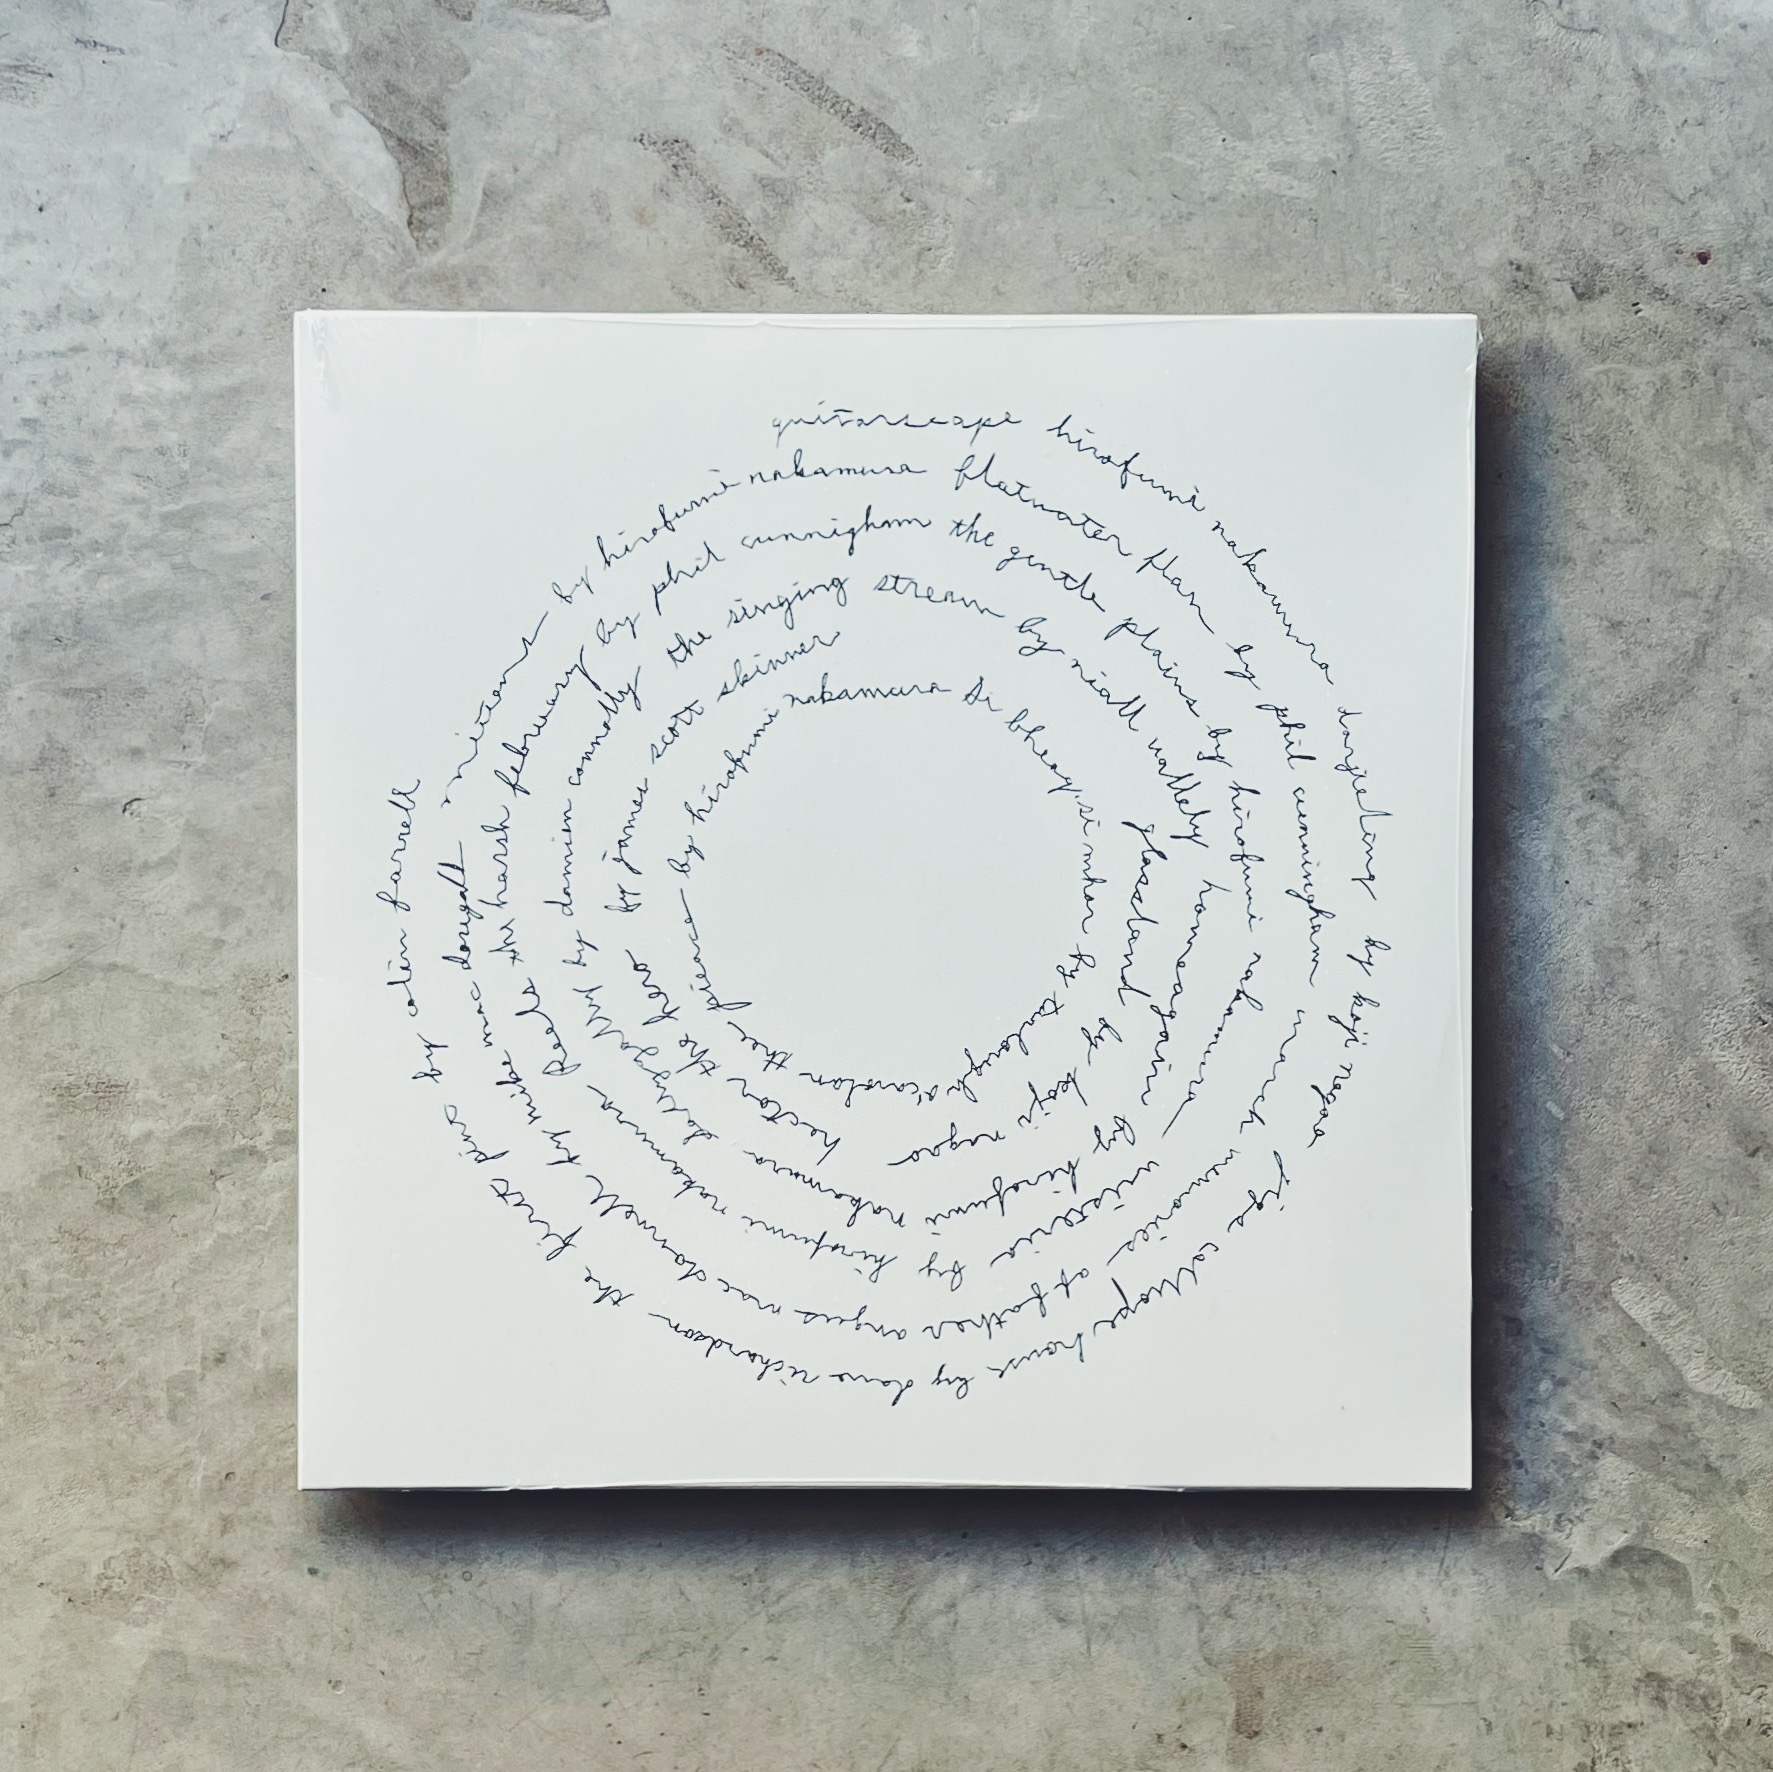 guitarscape hirofumi nakamura darjeling by koji nagao
jigs calliope house by dave richardson the first pint by colin farrell
by hirofumi nakamura flatwater fran by phil cunningham
march memories of father angus mac donnell by mike mac dougall
Reels the harsh february by phil cunnigham the gentle plains by hirofumi nakamura
wisteria by hirofumi nakamura
by damien connolly the singing stream by niall vallely home again by hirofumi nakamura
hector the hero by james scott skinner
glassland by koji nagao
by hirofumi nakamura Si bheag, si mhor by turlough o'carolan